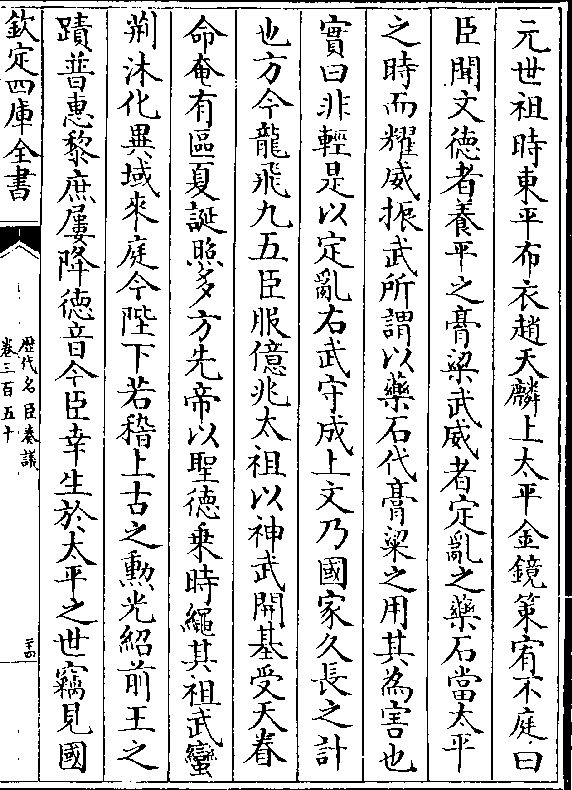 元世祖時東平布衣趙天麟上太平金鏡策宥不庭曰
臣聞文德者養平之膏粱武威者定亂之藥石當太平
之時而耀威振武所謂以藥石代膏粱之用其為害也
實曰非輕是以定亂右武守成上文乃國家久長之計
也方今龍飛九五臣服億兆太祖以神武開基受天眷
命奄有區夏誕照多方先帝以聖德乗時繩其祖武蠻
荆沐化異域來庭今陛下若稽上古之勲光紹前王之
蹟普惠黎庶屢降徳音今臣幸生於太平之世竊見國
欽定四庫全書
歴代名臣奏議
卷三百五十
二十四